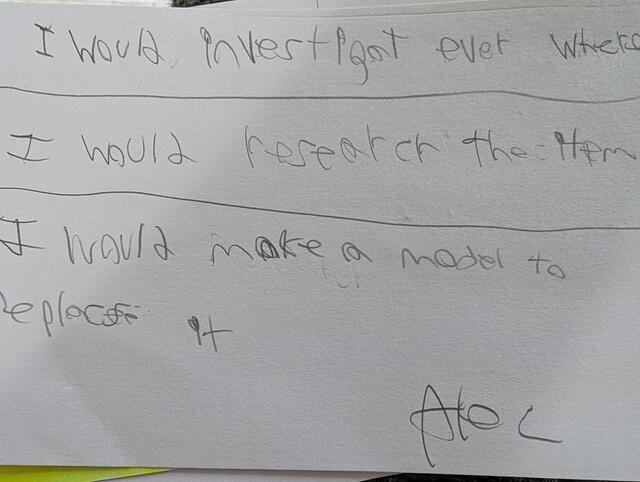 I would investigat ever where
I would research the item
I would make a model to
replace it
Alec